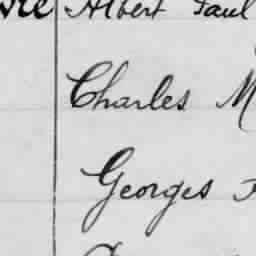 Albert Paul
Charles M
Georges